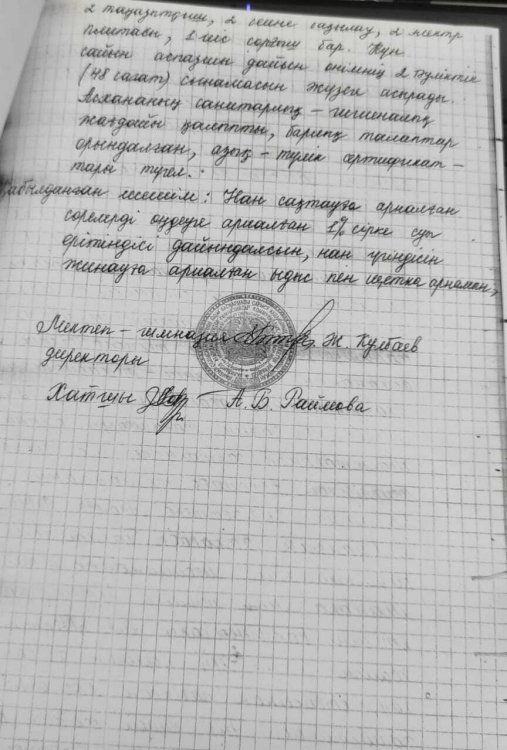 2 тоңазытқыш, 2 кеңсе, 2 электр
плитасы, 1 ыс сорғыш бар. Күн
сайын аспазшы дайын өнімнің 2 бүліктік
(48 сағат) сынамасын жүзеге асырады.
Асхананың санитарлық – гигиеналық
жағдайы қалыпты, барлық талаптар
орындалған, азық – түлік сертификат –
тары түгел.
Қабылданған шешім: Нан сақтауға арналған
сөрелерді өңдеуге арналған 1% сірке суы
ерітіндісі дайындалсын, нан үгіндісін
жинауға арналған ыдыс пен щетка арналсын,
Мектеп – гимназия Ж. Кулбаев
директоры
Хатшы А. Б. Раймова